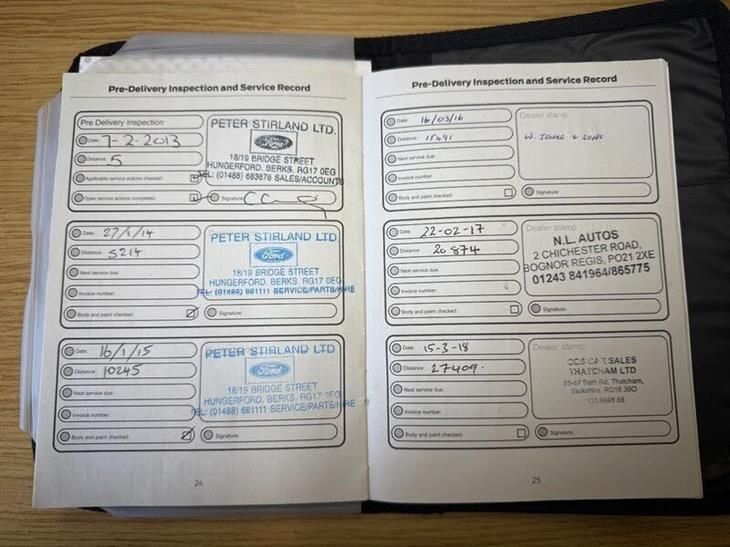 Pre-Delivery Inspection and Service Record
Pre Delivery Inspection
Date: 7-2-2013
Distance: 5
Applicable service actions checked:
Open service actions completed:
PETER STIRLAND LTD.
Ford
18/19 BRIDGE STREET
HUNGERFORD, BERKS, RG17 0EG
TEL: (01488) 683678 SALES/ACCOUNTS
Signature:
Date: 27/1/14
Distance: 5214
Next service due:
Invoice number:
Body and paint checked:
PETER STIRLAND LTD
Ford
18/19 BRIDGE STREET
HUNGERFORD, BERKS, RG17 0EG
TEL: (01488) 681111 SERVICE/PARTS/HIRE
Signature:
Date: 16/1/15
Distance: 10245
Next service due:
Invoice number:
Body and paint checked:
PETER STIRLAND LTD
Ford
18/19 BRIDGE STREET
HUNGERFORD, BERKS, RG17 0EG
TEL: (01488) 681111 SERVICE/PARTS/HIRE
Signature:
24
Pre-Delivery Inspection and Service Record
Date: 16/03/16
Distance: 15491
Next service due:
Invoice number:
Body and paint checked:
Dealer stamp:
W. JONES & SONS
Signature:
Date: 22-02-17
Distance: 20874
Next service due:
Invoice number:
Body and paint checked:
Dealer stamp:
N.L. AUTOS
2 CHICHESTER ROAD,
BOGNOR REGIS, PO21 2XE
01243 841964/865775
Signature:
Date: 15-3-18
Distance: 27409.
Next service due:
Invoice number:
Body and paint checked:
Dealer stamp:
CAR SALES
THATCHAM LTD
Bath Rd, Thatcham,
Berkshire, RG18 3BD
Signature:
25